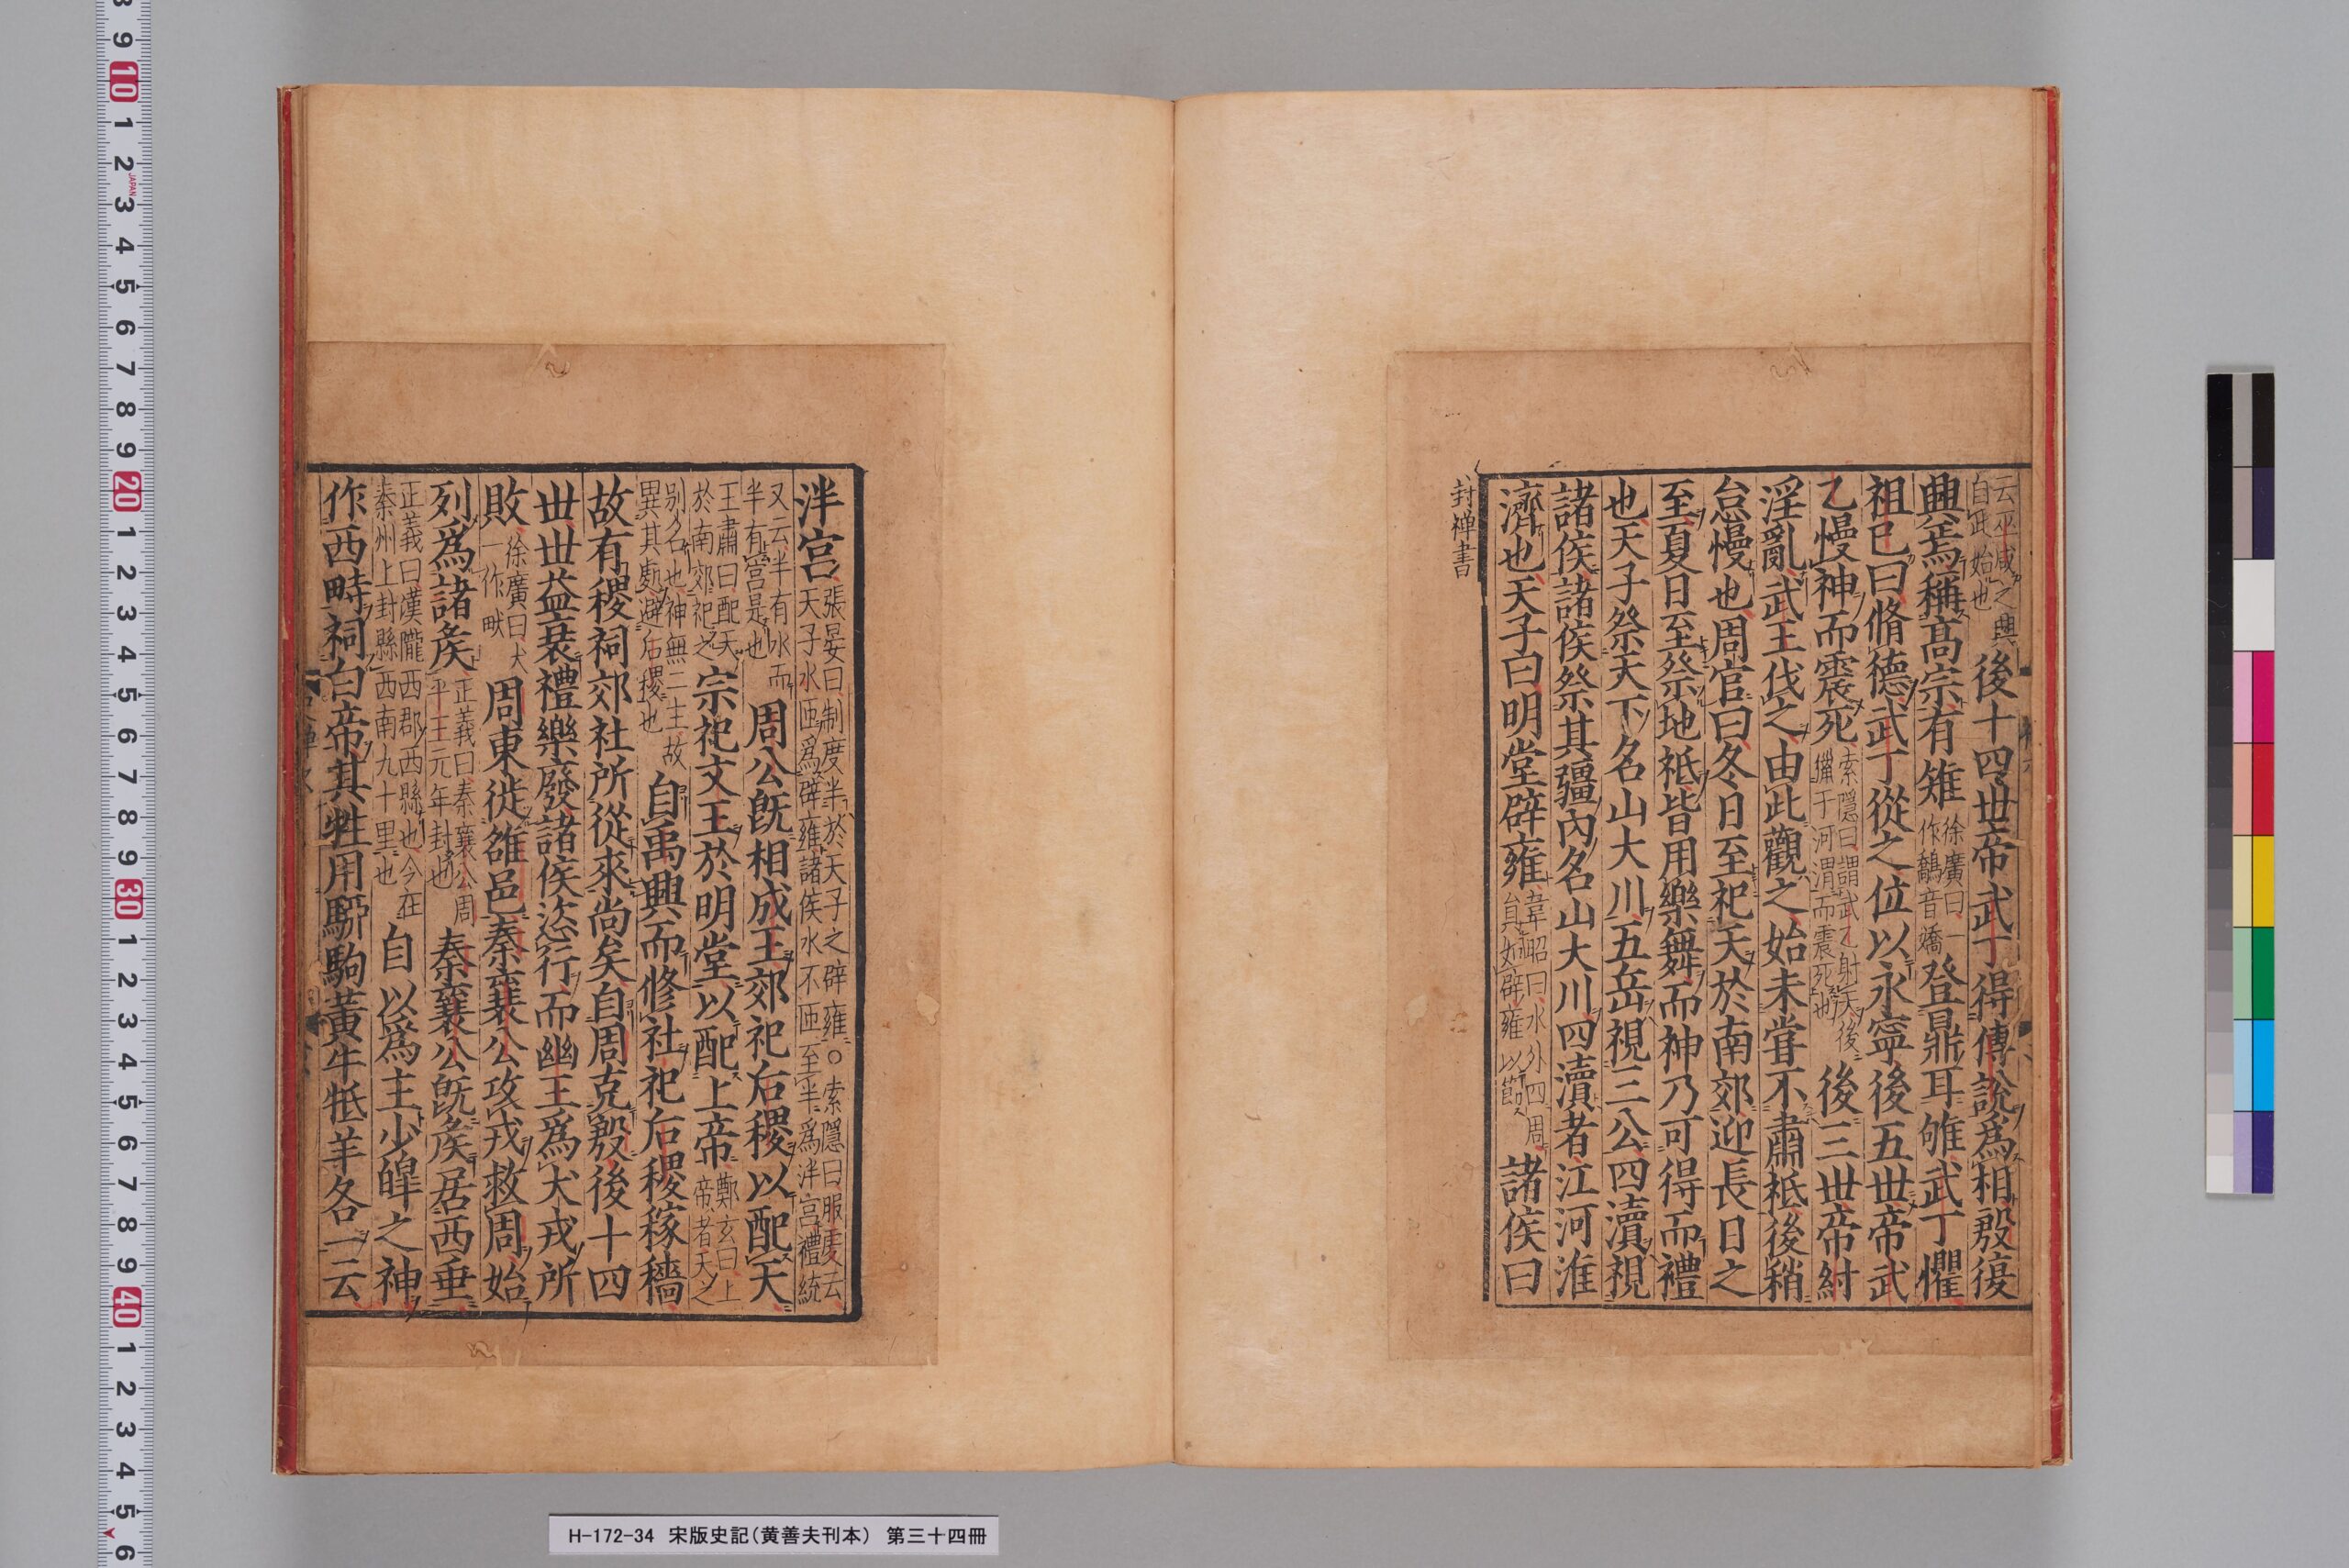 云巫咸之興
自此始也
後十四世帝武丁得傅說爲相殷復
興焉稱高宗有雉
徐廣曰一
作鷮音嬌
登鼎耳雊武丁懼
祖已曰脩德武丁從之位以永寧後五世帝武
乙慢神而震死
索隱曰謂武乙射天後
獵于河渭而震死也
後三世帝紂
淫亂武王伐之由此觀之始未甞不肅祗後稍
怠慢也周官曰冬日至祀天於南郊迎長日之
至夏日至祭地祇皆用樂舞而神乃可得而禮
也天子祭天下名山大川五岳視三公四瀆視
諸侯諸侯祭其疆內名山大川四瀆者江河淮
濟也天子曰明堂辟雍
韋昭曰水外四周
負如辟雍以節
諸侯曰
封禅書
泮宮
張晏曰制度半於天子之辟雍○索隱曰服虔云
天子水匝爲辟雍諸侯水不匝至半爲泮宮禮統
又云半有水而
半有宮是也
周公旣相成王郊祀后稷以配天
王肅曰配天
於南郊祀之
宗祀文王於明堂以配上帝
鄭玄曰上
帝者天之
別名也神無二主故
異其處避后稷也
自禹興而修社祀后稷稼穡
故有稷祠郊社所從來尚矣自周克殷後十四
世世益衰禮樂廢諸侯恣行而幽王爲犬戎所
敗
徐廣曰犬
一作畎
周東徙雒邑秦襄公攻戎救周始
列爲諸侯
正義曰秦襄公周
平王元年封也
秦襄公旣侯居西垂
正義曰漢隴西郡西縣也今在
秦州上封縣西南九十里也
自以爲主少皞之神
作西畤祠白帝其牲用騮駒黃牛羝羊各一云
H-172-34 宋版史記(黄善夫刊本) 第三十四冊